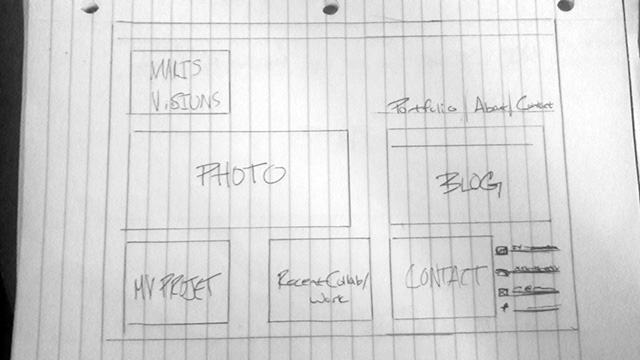 MALIS
VISIONS
Portfolio | About/Contact
PHOTO
BLOG
MY PROJET
Recent Collab/
Work
CONTACT